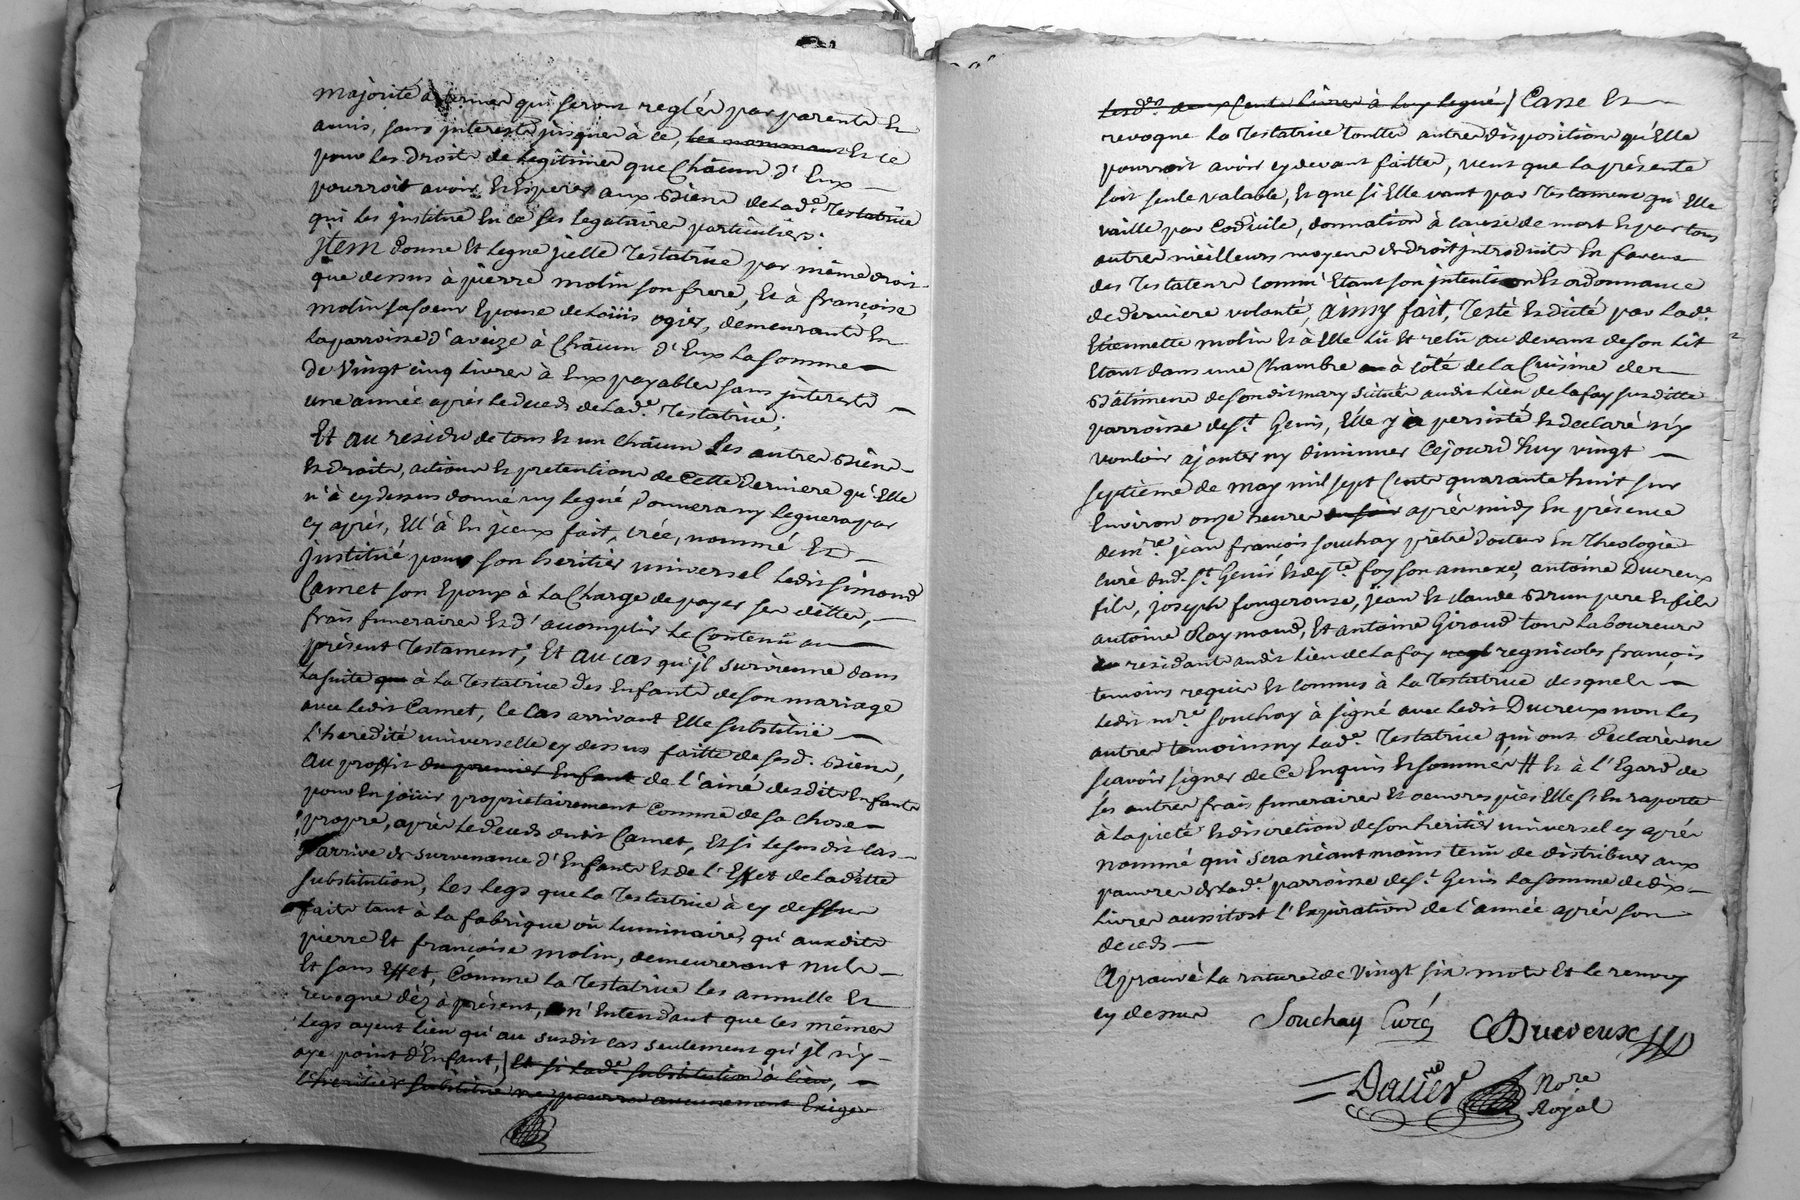 majorité à termes qui seront reglés par parents Et
amis, sans interests jusques à ce, les nommant Et ce
pour les droits de legitimes que Chacun d'Eux
pourroit avoir, Et Esperer aux biens de Lad.e Testatrice
qui les jnstitue En ce ses legataires particuliers.
jtem donne Et legue jcelle Testatrice par même droit
que dessus à pierre molin son frere, Et à françoise
molin sa soeur Epouse de Loüis ogier, demeurants En
la parroisse d'aveize à Chacun d'Eux la somme
de Vingt cinq Livres à Eux payables sans jnterests
une année après le deceds de Lad.e Testatrice;
Et au residu de tous Et un Chacun Les autres biens
Et droits, actions Et pretentions de Cette derniere qu'Elle
n'à cy dessus donné ny legué, donnera ny leguera par
cy après, Ell'à En jceux fait, créé, nommé Et
jnstitué pour son heritier universel Ledit Simond
Camet son Epoux à la Charge de payer ses dettes,
frais funeraires Et d'accomplir Le Contenû au
présent Testament; Et au cas qu'jl survienne dans
la suite que à la Testatrice des Enfants de son mariage
avec Ledit Camet, le Cas arrivant Elle substitüe
l'heredité universelle cy dessus faitte de sesd. biens,
au proffit du premier Enfant de l'ainé desdits Enfants
pour En joüir proprietairement Comme de sa chose
propre, après Le deceds dudit Camet, Et si le susdit Cas
arrive de survenance d'Enfants Et de l'Effet de Laditte
substitution, Les legs que la Testatrice à cy dessus
faits tant à la fabrique où Luminaire, qu'auxdits
pierre Et françoise molin, demeureront nuls
Et sans Effet, Comme la Testatrice les annulle Et
revoque déz à présent, n'Entendant que les mêmes
legs ayent lieu qu'au susdit cas seulement qu'jl n'y
aye point d'Enfant, Et si Lad.e substitution à lieu,
l'heritier substitué ne pourra aucunement Exiger
Lesd.es deux Cents Livres à luy legué) Casse Et
revoque la Testatrice touttes autres dispositions qu'Elle
pourroit avoir cy devant faittes, veut que la présente
soit seule valable, Et que si Elle vaut par Testament qu'Elle
vaille par Codicile, donnation à cause de mort Et par tous
autres meilleurs moyens de droit jntroduits En faveur
des Testateurs Comm'Etant son jntention Et ordonnance
de derniere volonté, Ainsy fait, Testé Et dicté par Lad.e
Etiennette molin Et à Elle Lû Et relû au devant de son Lit
Etant dans une Chambre à côté de la Cuisine des
bâtiments de son dit mary situés audit Lieu de Lafay susditte
parroisse de St Genis, Elle y à persisté Et declaré n'y
vouloir ajouter ny diminuer Cejourd'huy vingt
septieme de may mil sept Cents quarante huit sur
Environ onze heures du soir après midy En présence
de m.re jean françois Souchay prêtre docteur En Theologie
Curé dud. St Genis Et de Ste foy son annexe, antoine Ducreux
fils, joseph fougerouse, jean Et claude brun pere Et fils
antoine Raymond, Et antoine Giroud tous Laboureurs
residants audit Lieu de Lafay regnicoles françois
temoins requis Et Connus à la Testatrice desquels
Ledit m.re Souchay à signé avec Ledit Ducreux non Les
autres temoins ny Lad.e Testatrice qui ont declarés ne
sçavoir signer de Ce Enquis Et sommés # Et à l'Egard de
ses autres frais funeraires Et oeuvres pies Elle s'En raporte
à la pieté Et discretion de son heritier universel cy après
nommé qui sera néantmoins tenû de distribuer aux
pauvres de Lad.e parroisse de St Genis La somme de dix
Livres aussitost l'Expiration de l'année après son
deceds
Aprouvé la rature de Vingt six mots Et le renvoy
cy dessus
Souchay Curé
CDucreux
Dalier
No.re
Royal